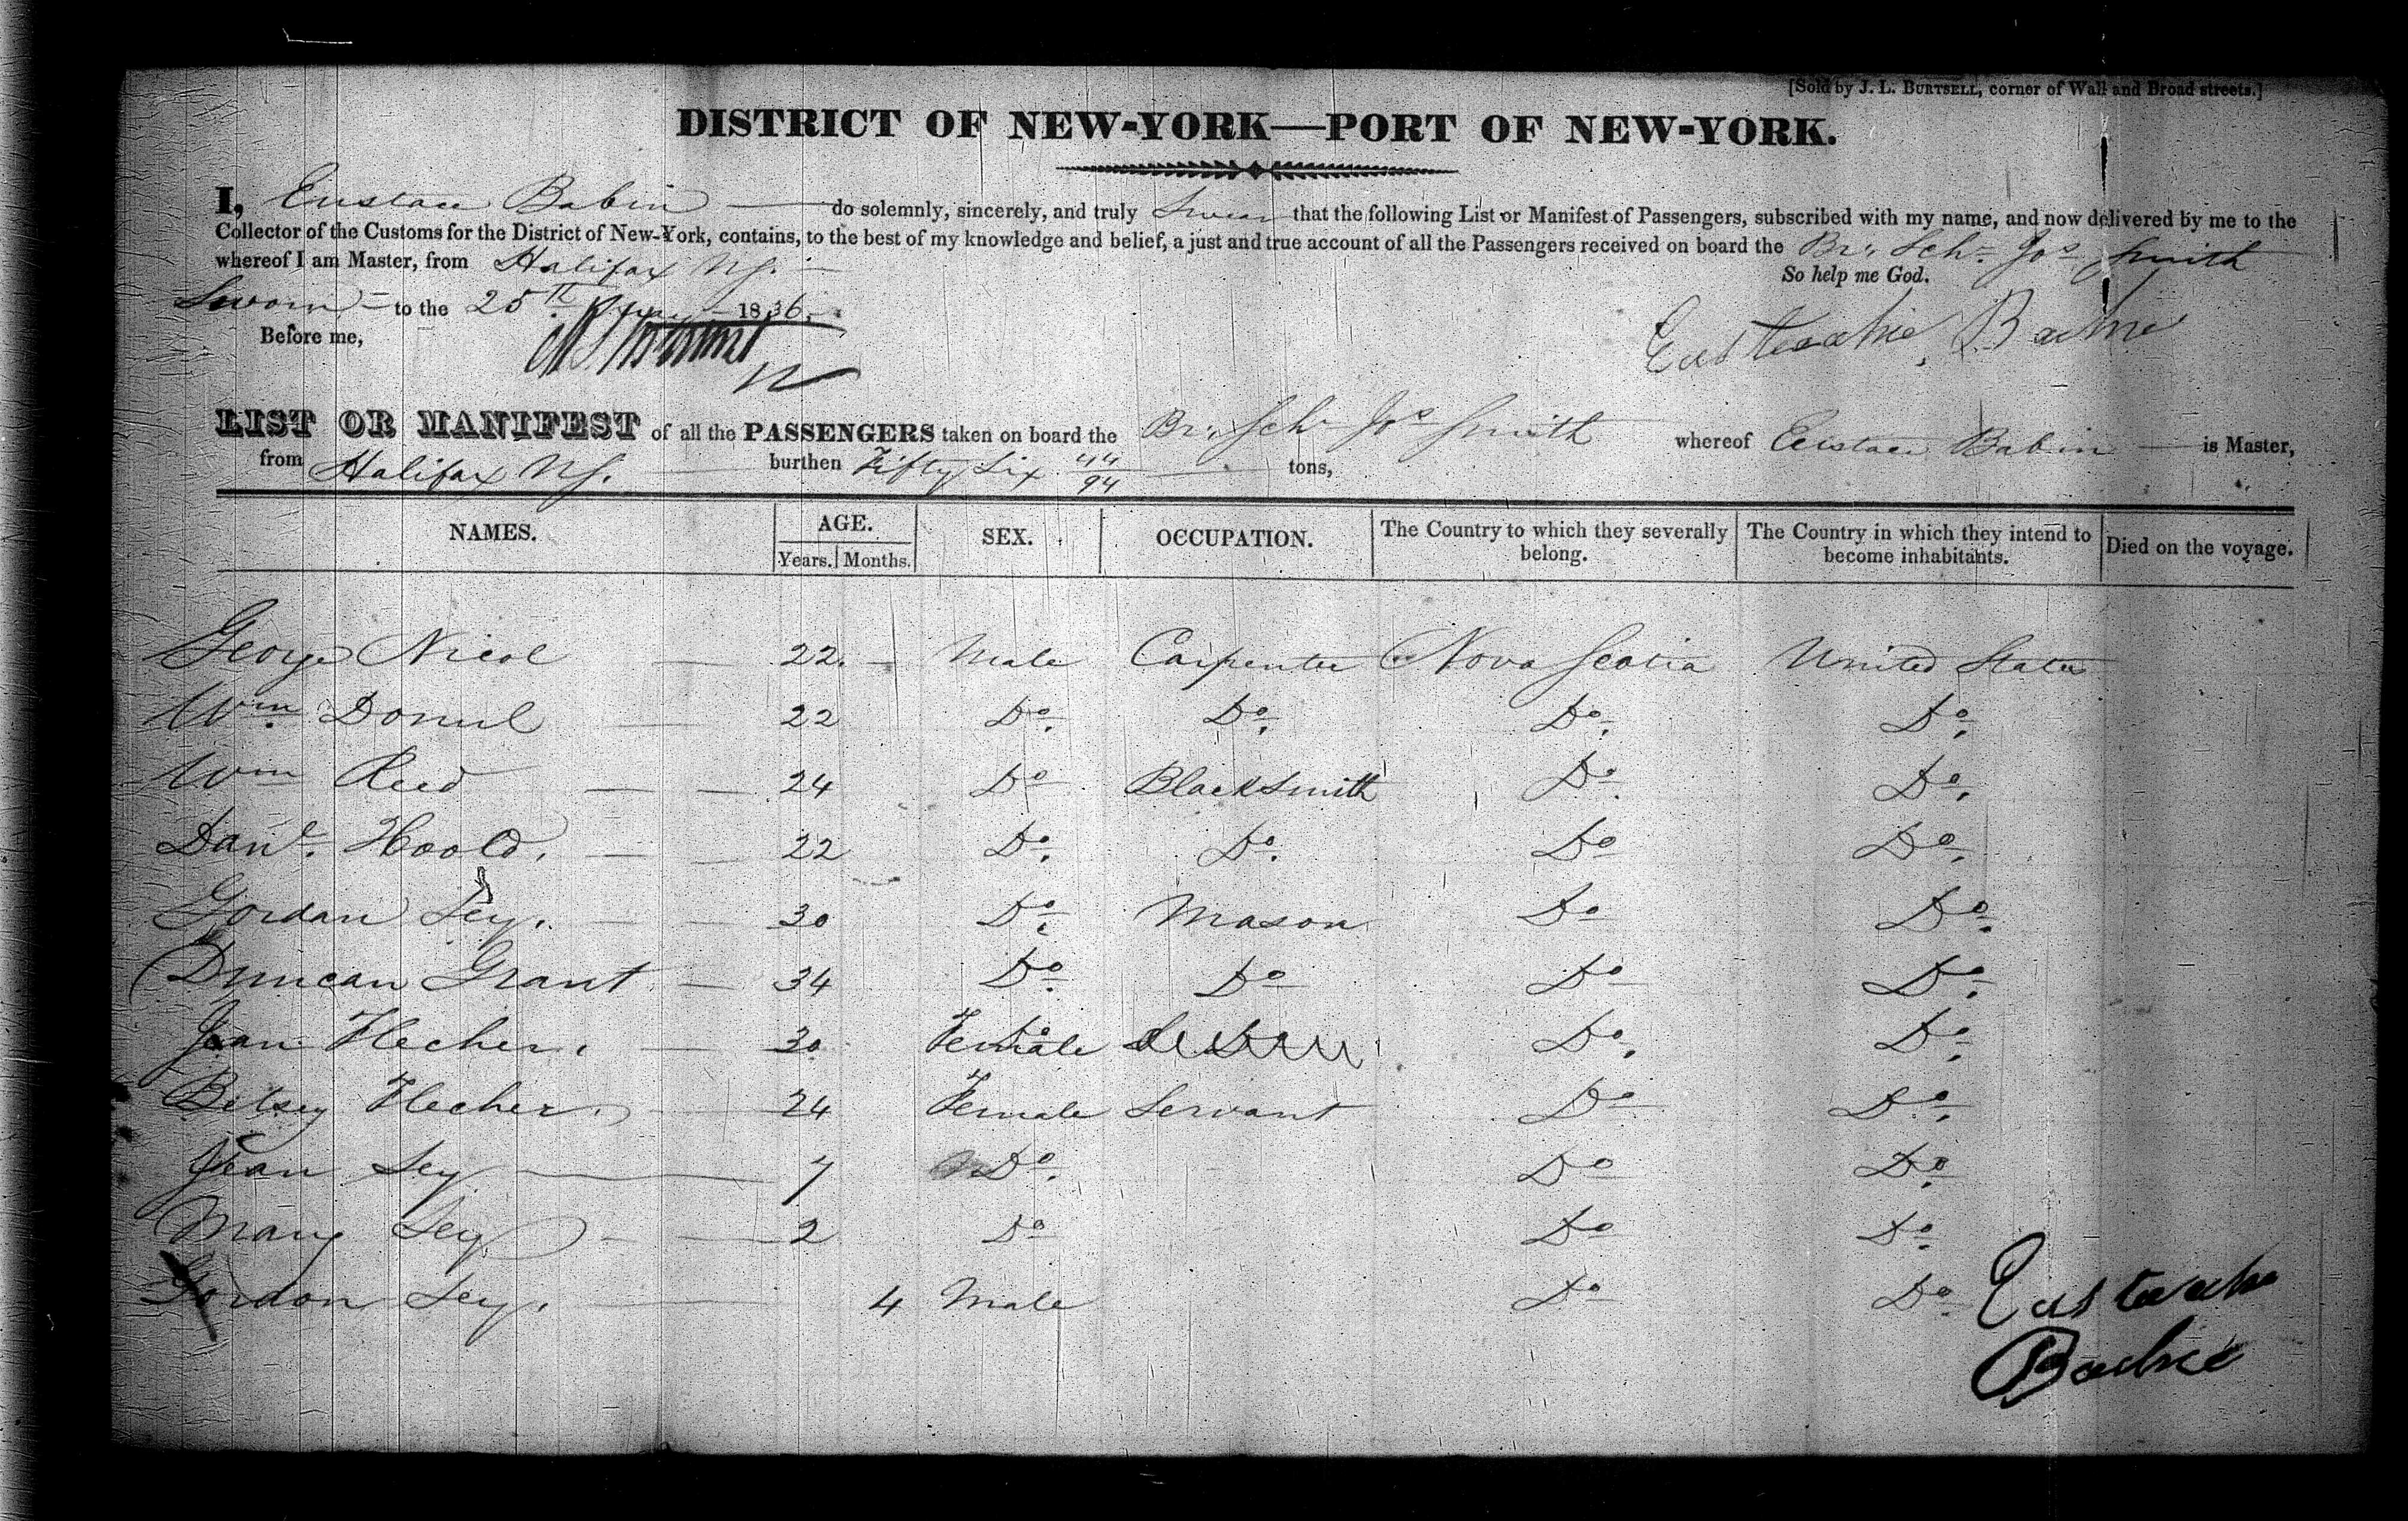 [Sold by J. L. BURTSELL, corner of Wall and Broad streets.]
DISTRICT OF NEW-YORK—PORT OF NEW-YORK.
I, Eustace Babin do solemnly, sincerely, and truly Swear that the following List or Manifest of Passengers, subscribed with my name, and now delivered by me to the
Collector of the Customs for the District of New-York, contains, to the best of my knowledge and belief, a just and true account of all the Passengers received on board the Br. Schr. Jos Smith
whereof I am Master, from Halifax NS.
So help me God.
Sworn to the 25th 1836.
Before me,
LIST OR MANIFEST of all the PASSENGERS taken on board the Br. Schr Jos Smith whereof Eustace Babin is Master,
from Halifax NS. burthen Fifty Six 44/94 tons,
NAMES. AGE. SEX. OCCUPATION. The Country to which they severally belong. The Country in which they intend to become inhabitants. Died on the voyage.
Years. Months.
George Nicol 22. Male Carpenter Nova Scotia United States
Wm Donul 22 Do. Do. Do. Do.
Wm Reed 24 Do Blacksmith Do. Do.
Danl. Hoold. 22 Do. Do. Do Do.
Gordan Ley. 30 Do. Mason Do Do.
Duncan Grant 34 Do. Do Do Do.
Jean Flecher. 30 Female Do. Do.
Betsey Flecher. 24 Female Servant Do Do.
Jean Ley 7 Do. Do Do.
Mary Ley 2 Do Do Do.
Gordon Ley. 4 Male Do Do.